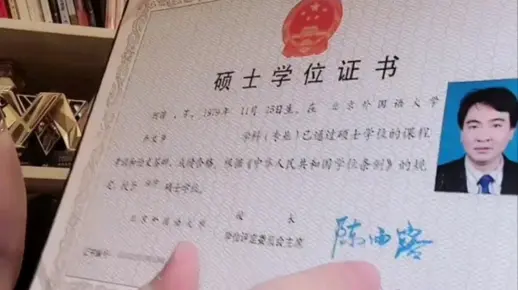 硕士学位证书
1979年11月23日生。在 北京外国语大学
学科(专业)已通过硕士学位的课程
考试和论文答辩,成绩合格。根据《中华人民共和国学位条例》的规
定,授予 硕士学位。
北京外国语大学 校 长
学位评定委员会主席
证书编号: